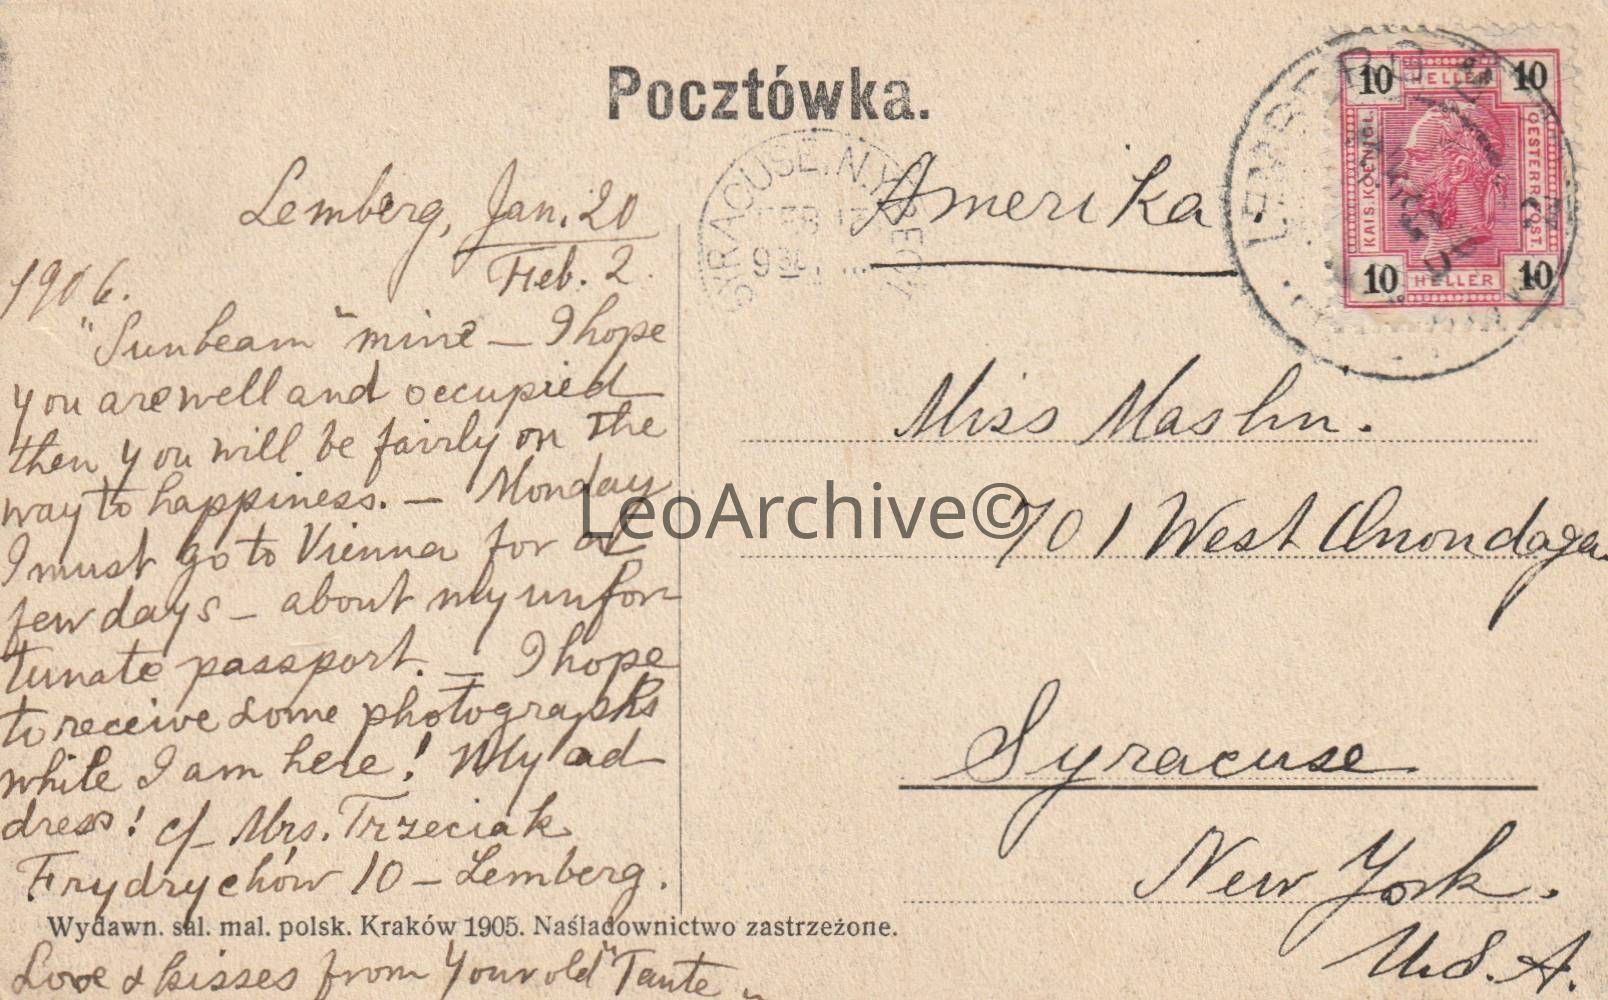 Pocztówka.
Lemberg, Jan. 20
Feb. 2.
1906.
"Sunbeam" mine — I hope
you are well and occupied
then you will be fairly on the
way to happiness. — Monday
I must go to Vienna for a
few days — about my unfor-
tunate passport. — I hope
to receive some photographs
while I am here! My ad
dress! c/ Mrs. Trzeciak
Frydrychów 10 — Lemberg.
Wydawn. sal. mal. polsk. Kraków 1905. Naśladownictwo zastrzeżone.
Love & kisses from Your old "Tante"
SYRACUSE, N.Y.
FEB 12
LEMBERG
10 HELLER 10
KAIS. KOENIGL.
OESTERR. POST.
10 HELLER 10
Amerika.
Miss Maslin.
701 West Onondaga
Syracuse
New York.
U.S.A.
LeoArchive©